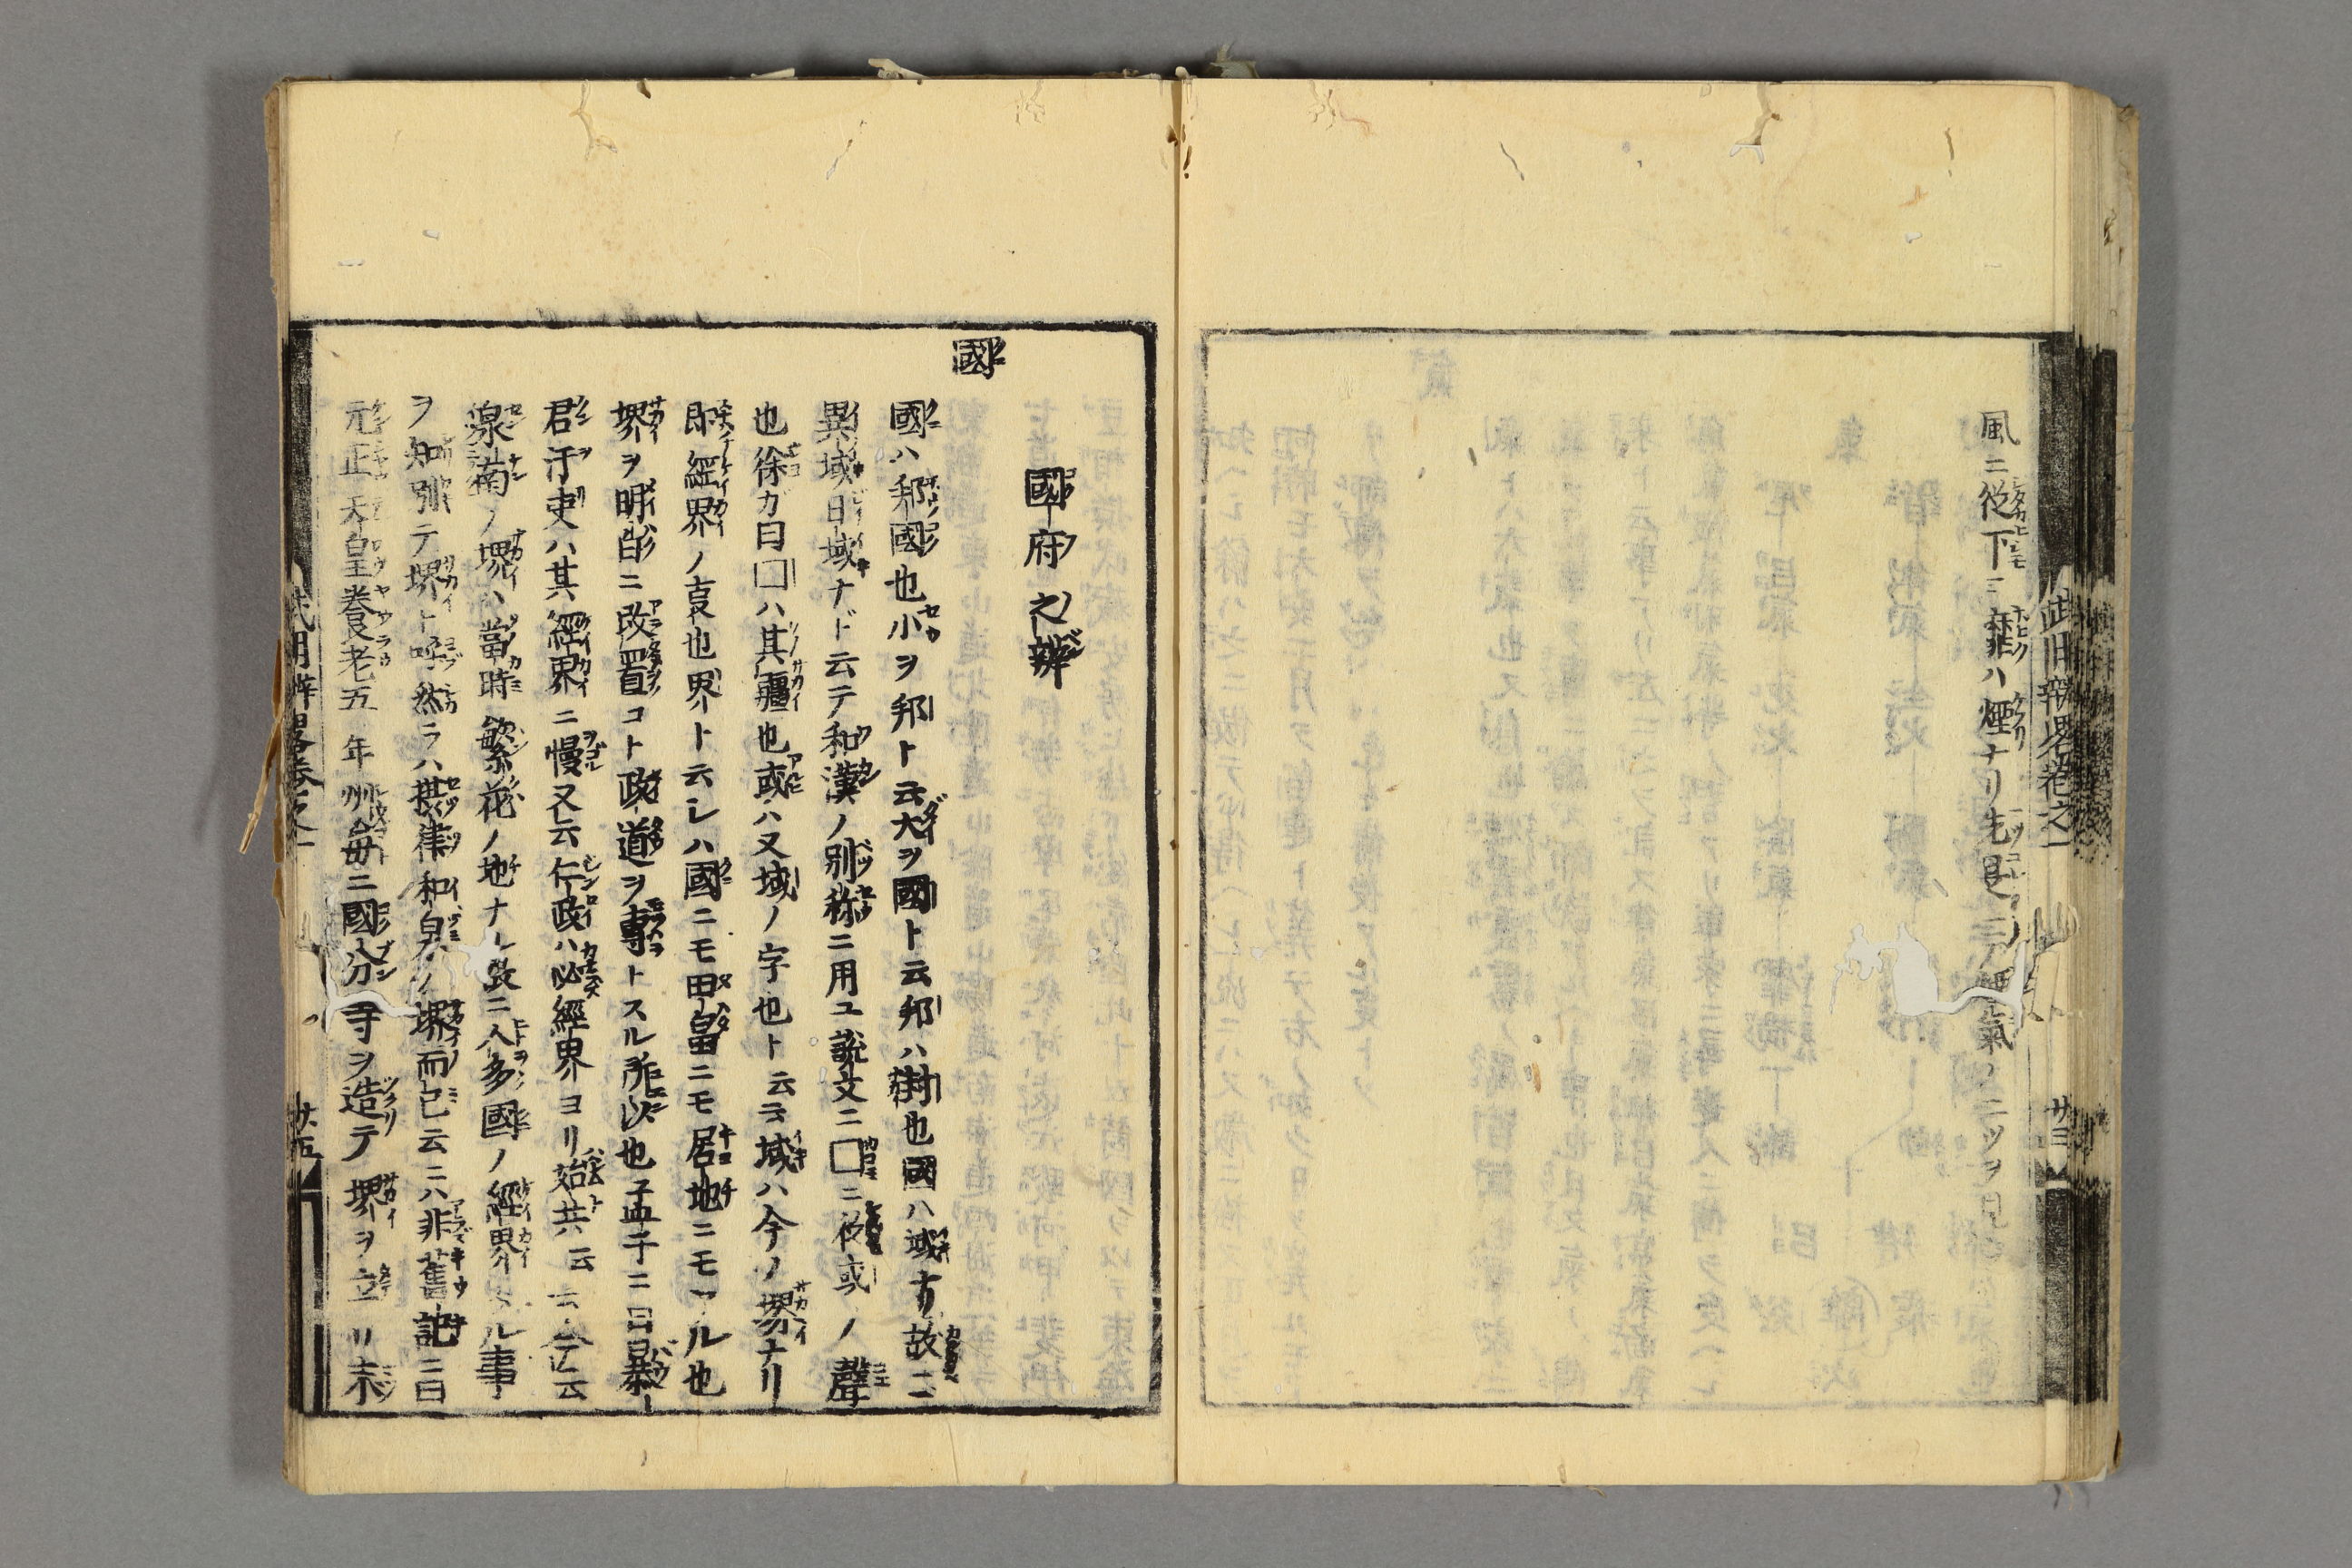 風ニ從下ニ靡ハ煙ナリ先是三ノ煙氣ノ二ツヲ見
武用辨畧卷之一
國府之辨
國
國ハ邦國也小ヲ邦ト云大ヲ國ト云邦ハ封也國ハ域也故ニ
異域日域ナドト云テ和漢ノ別称ニ用ユ說文ニ囗ニ从或ノ聲
也徐ガ曰囗ハ其疆也或ハ又域ノ字也ト云云域ハ今ノ堺ナリ
即經界ノ㕝也界ト云レハ國ニモ田畠ニモ居地ニモ ル也
堺ヲ明白ニ改置コト政道ヲ專トスル所以也孟子ニ曰暴
君汙吏ハ其經界ニ慢又云仁政ハ必經界ヨリ始共云 云今云
泉南ノ堺ハ當時繁花ノ地ナル故ニ人多國ノ經界 ル事
ヲ知別テ堺ト呼然ラハ摂津和泉ノ堺而已云ニハ非舊記ニ曰
元正天皇養老五年州毎ニ國分寺ヲ造テ堺ヲ立リ未
武用辨畧卷之一
廿五